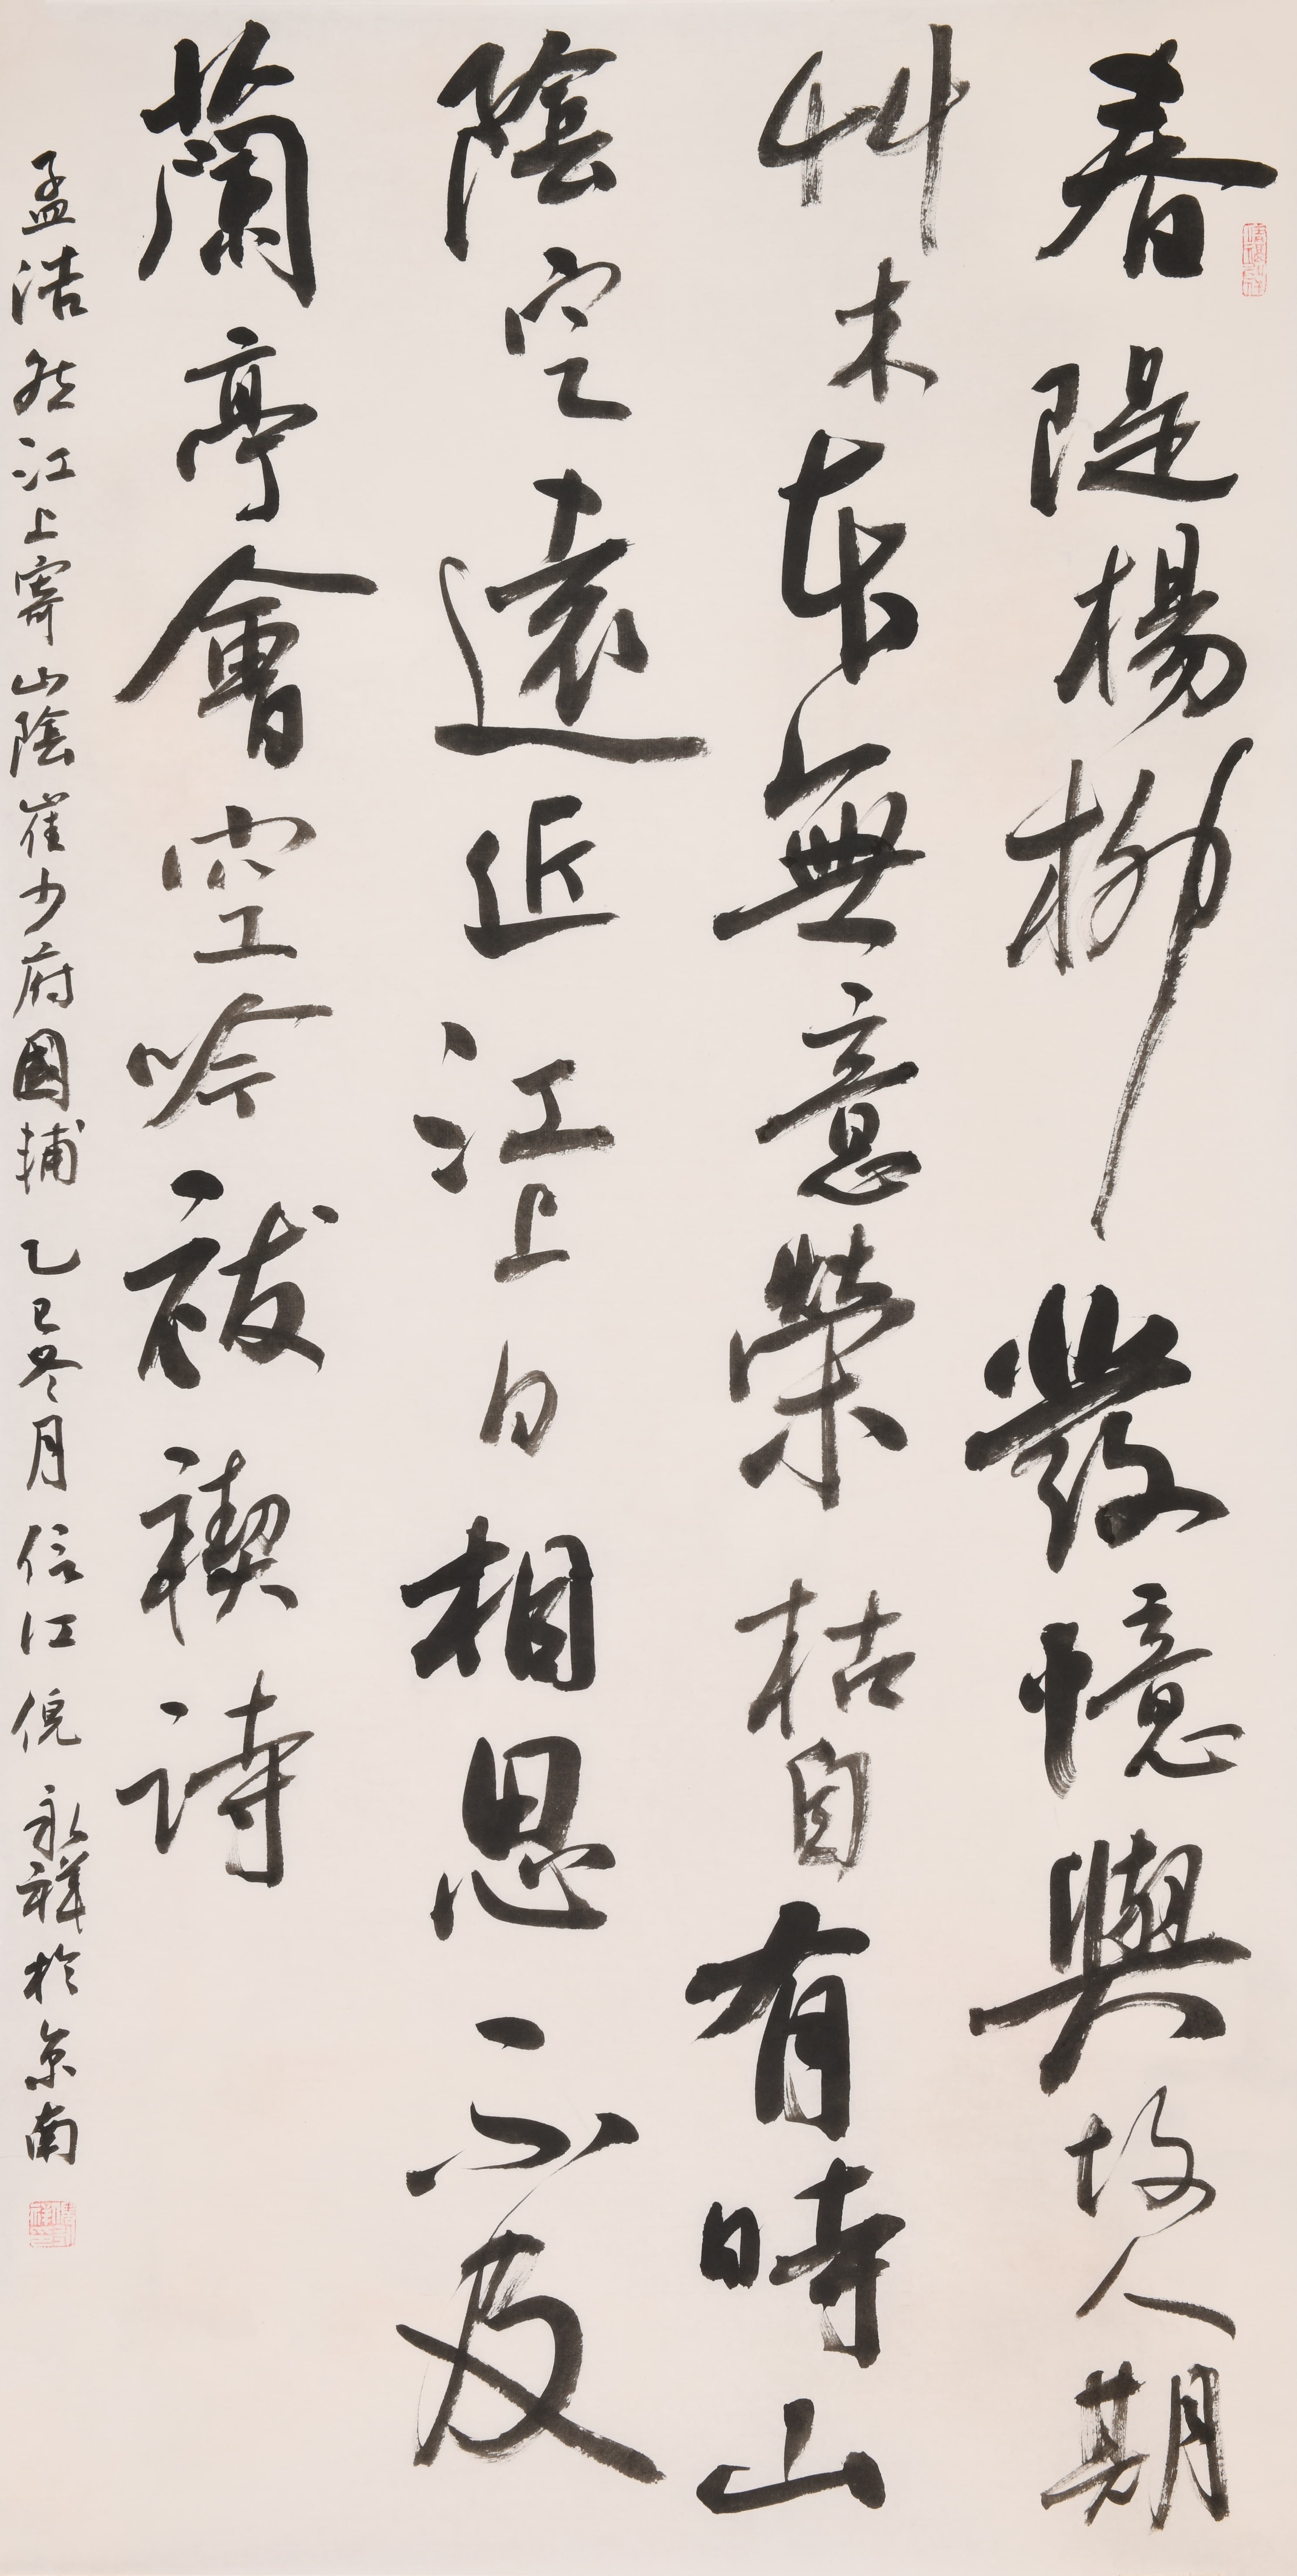 春隄楊柳發憶與故人期
艸木本無意榮枯自有時山
陰定遠近江上日相思不及
蘭亭會空吟祓禊詩
孟浩然江上寄山陰崔少府國輔乙巳冬月信江倪永祥於京南